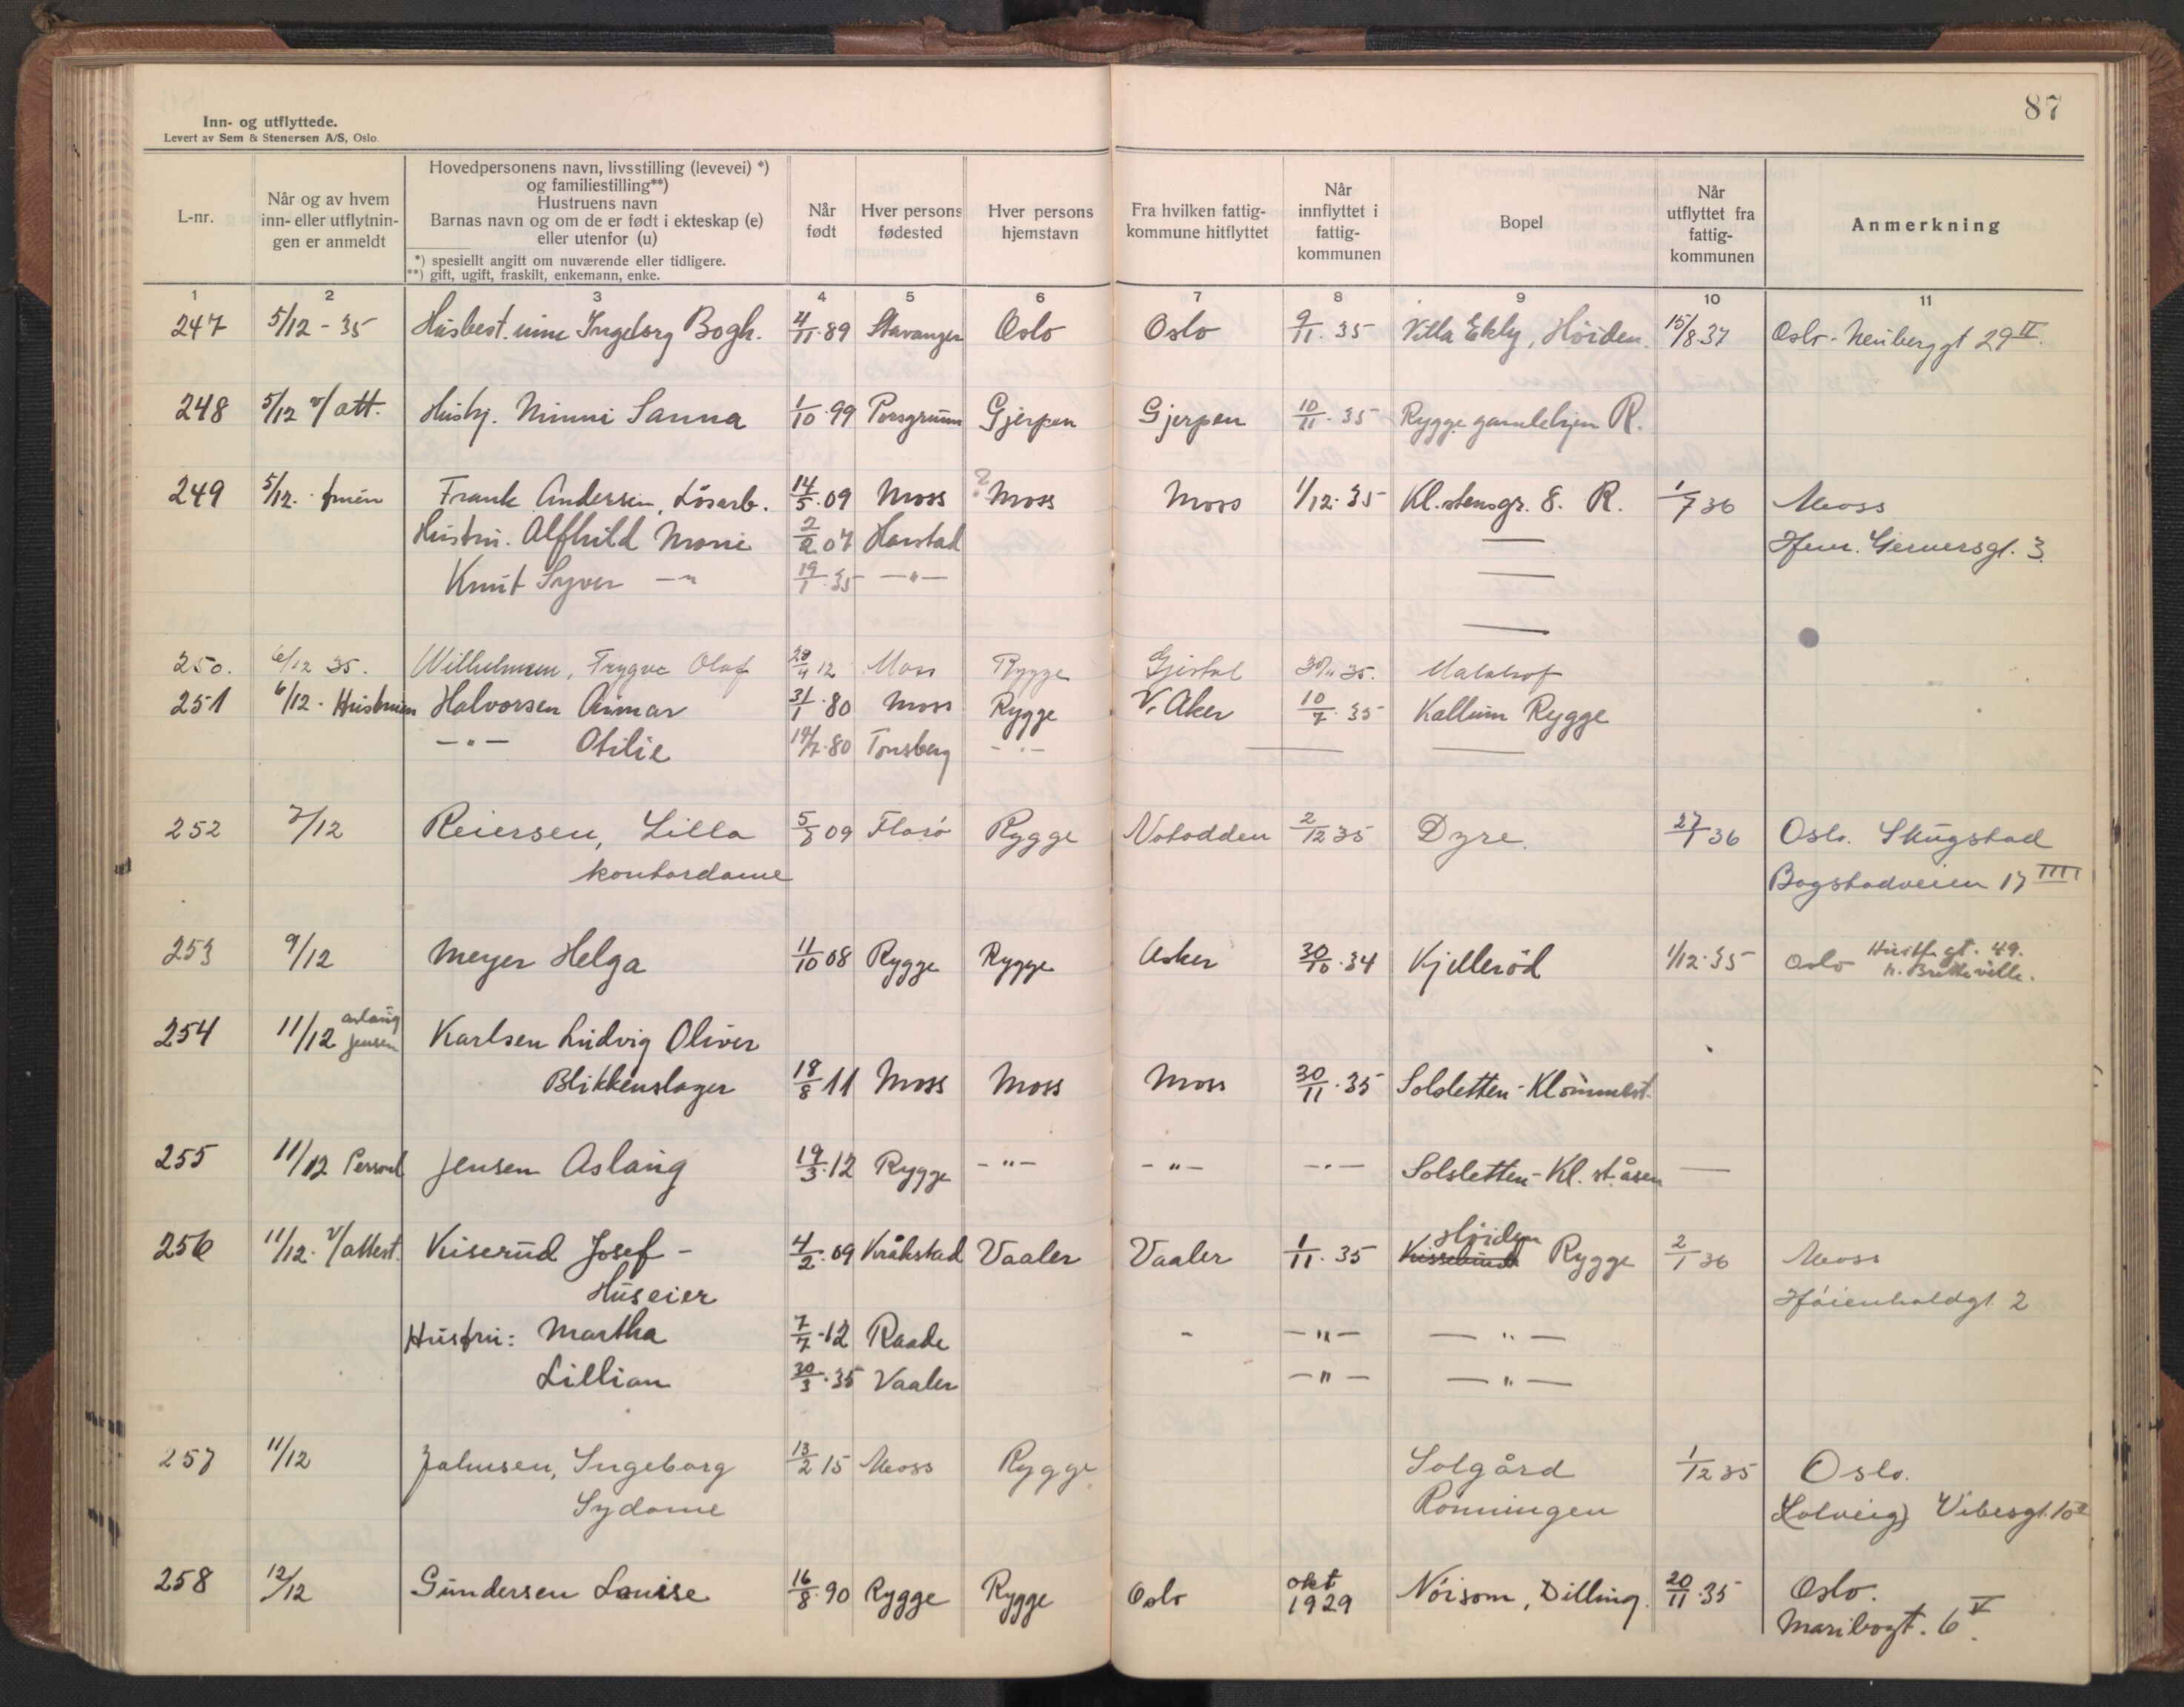 87
Inn- og utflyttede.
Levert av Sem & Stenersen A/S, Oslo.
L-nr.
Når og av hvem
inn- eller utflytnin-
gen er anmeldt
Hovedpersonens navn, livsstilling (levevei) *)
og familiestilling**)
Hustruens navn
Barnas navn og om de er født i ekteskap (e)
eller utenfor (u)
*) spesiellt angitt om nuværende eller tidligere.
**) gift, ugift, fraskilt, enkemann, enke.
Når
født
Hver persons
fødested
Hver persons
hjemstavn
Fra hvilken fattig-
kommune hitflyttet
Når
innflyttet i
fattig-
kommunen
Bopel
Når
utflyttet fra
fattig-
kommunen
Anmerkning
1 2 3 4 5 6 7 8 9 10 11
247 5/12 - 35 Husbest. Ingeborg Bogh. 4/11.89 Stavanger Oslo Oslo 9/11.35 Villa Ekly, Höiden. 15/8.37 Oslo - Neuberggt 29 II.
248 5/12 v/att. Husbj. Minni Sanna 1/10.99 Porsgrunn Gjerpen Gjerpen 10/11.35 Rygge gamlehjem R.
249 5/12. fruen Frank Andersen, Lösarb. 14/5.09 Moss ? Moss Moss 1/12.35 Kl.stensgr. 8. R. 1/7 36 Moss
Hustru. Alfhild Marie 2/2 07 Harstad — Hem. Gernersgt. 3.
Knut Syver — " 19/1.35 — " — —
—
250. 6/12 35. Wilhelmsen, Trygve Olaf 28/4 12 Moss Rygge 30/11 35. Malahof
251 6/12. Hustruen Halvorsen Anmar 31/1.80 Moss Rygge V. Aker 10/7.35 Kallum Rygge
— " — Otilie 14/7.80 Tønsberg — " — — —
252 7/12 Reiersen, Lilla 5/8 09 Florö Rygge Notodden 2/12 35 Dyre. 27/1 36 Oslo. Skugstad
kontordame Bogstadveien 17 IIII
253 9/12 Meyer Helga 11/10 08 Rygge Rygge Asker 30/10.34 Kjellerød 1/12.35 Oslo Huitf. gt. 49.
254 11/12 aslaug Jensen Karlsen Ludvig Oliver
Blikkenslager 18/8 11 Moss Moss Moss 30/11.35 Solsletten - Klommest.
255 11/12 Personl Jensen Aslaug 19/3.12 Rygge — " — — " — — " — Solsletten - Kl. st.åsen —
256 11/12. v/attest. Kiserud Josef - 4/2.09 Kråkstad Vaaler Vaaler 1/11.35 Höiden Rygge 2/1 36 Moss
Huseier Höienhaldgt. 2
Hustru: Martha 7/7-12 Raade - — " — — " —
Lillian 30/3.35 Vaaler — " — — " —
257 11/12 Johnsen, Ingeborg 13/2 15 Moss Rygge Solgård 1/12 35 Oslo.
Sydame Rönningen (Solveig) Vibesgt. 10 II
258 12/12 Gundersen Louise 16/8.90 Rygge Rygge Oslo okt 1929 Nöisom, Dilling. 20/11.35 Oslo.
Maribogt. 6 V.